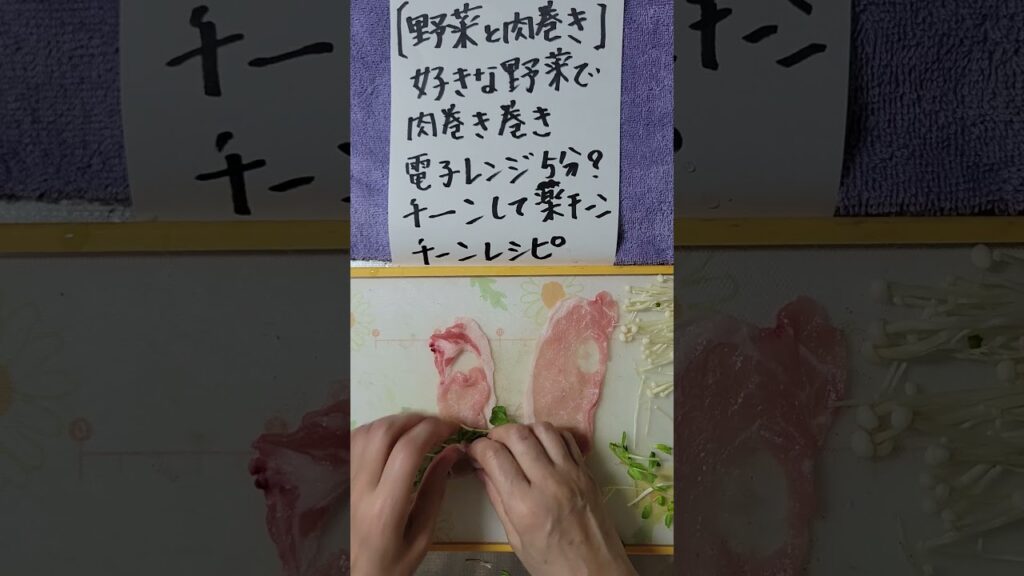 [野菜と肉巻き]
好きな野菜で
肉巻き巻き
電子レンジ5分?
チーンして薬チン
チーンレシピ